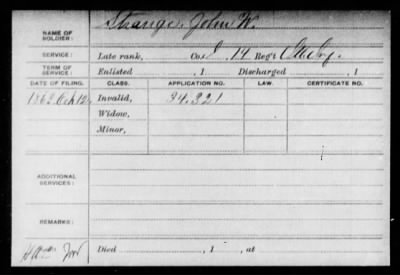 Strange, John W.
NAME OF SOLDIER:
SERVICE: Late rank, Co. I, 14 Reg't
TERM OF SERVICE: Enlisted , 1 Discharged , 1
DATE OF FILING. CLASS. APPLICATION NO. LAW. CERTIFICATE NO.
1863 Oct 12, Invalid, 34.321
Widow,
Minor,
ADDITIONAL SERVICES:
REMARKS:
Died , 1 , at